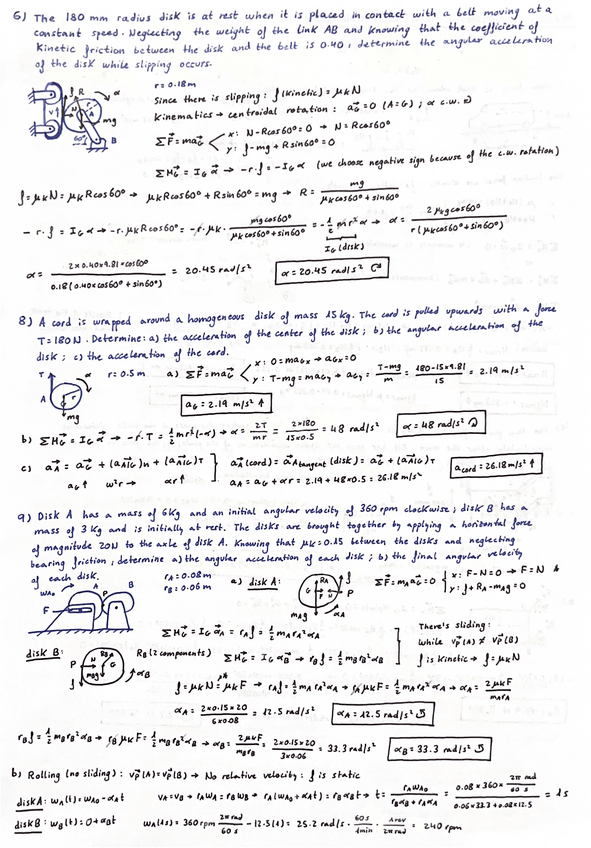 6) The 180 mm radius disk is at rest when it is placed in contact with a belt moving at a
constant speed. Neglecting the weight of the link AB and knowing that the coefficient of
Kinetic friction between the disk and the belt is 0.40, determine the angular acceleration
of the disk while slipping occurs.
r = 0.18m
Since there is slipping: f (kinetic) = μkN
Kinematics → centroidal rotation: aG = 0 (A=G); α c.w.
f R α
V N r A
mg
60° B
ΣF = maG < x: N - Rcos60° = 0 → N = Rcos60°
y: f - mg + Rsin60° = 0
ΣMG = IG α → -r·f = -IG α (we choose negative sign because of the c.w. rotation)
f = μkN = μkRcos60° → μkRcos60° + Rsin60° = mg → R = mg / (μkcos60° + sin60°)
-r·f = IG α → -r·μkRcos60° = -r·μk· mgcos60° / (μkcos60° + sin60°) = -1/2 mr² α → α = 2μkgcos60° / r(μkcos60° + sin60°)
IG (disk)
α = 2×0.40×9.81×cos60° / 0.18(0.40cos60° + sin60°) = 20.45 rad/s² α = 20.45 rad/s² ↻
8) A cord is wrapped around a homogeneous disk of mass 15 kg. The cord is pulled upwards with a force
T = 180N. Determine: a) the acceleration of the center of the disk; b) the angular acceleration of the
disk; c) the acceleration of the cord.
T α
A G r
mg
r = 0.5m a) ΣF = maG < x: 0 = maGx → aGx = 0
y: T - mg = maGy → aGy = (T-mg)/m = (180-15×9.81)/15 = 2.19 m/s²
aG = 2.19 m/s² ↑
b) ΣMG = IG α → -r·T = 1/2 mr²(-α) → α = 2T/mr = 2×180 / 15×0.5 = 48 rad/s² α = 48 rad/s² ↻
c) aA = aG + (aA/G)n + (aA/G)T
aG ↑ ω²r → αr ↑
aA (cord) = aA tangent (disk) = aG + (aA/G)T
aA = aG + αr = 2.19 + 48×0.5 = 26.18 m/s²
acord = 26.18 m/s² ↑
9) Disk A has a mass of 6 Kg and an initial angular velocity of 360 rpm clockwise; disk B has a
mass of 3 Kg and is initially at rest. The disks are brought together by applying a horizontal force
of magnitude 20N to the axle of disk A. Knowing that μk = 0.15 between the disks and neglecting
bearing friction, determine a) the angular acceleration of each disk; b) the final angular velocity
of each disk.
ωA₀ A P B
F
rA = 0.08m
rB = 0.06m
a) disk A:
RA f
G F N P
mAg αA
ΣF = mAaG = 0 { x: F - N = 0 → F = N
y: f + RA - mAg = 0
ΣMG = IG αA = rAf = 1/2 mArA²αA
disk B:
P N RB G
f mBg αB
RB (2 components) ΣMG = IG αB → rBf = 1/2 mBrB²αB
There's sliding:
while vP(A) ≠ vP(B)
f is Kinetic → f = μkN
f = μkN = μkF → rAf = 1/2 mA rA²αA → rAμkF = 1/2 mA rA²αA → αA = 2μkF / mArA
αA = 2×0.15×20 / 6×0.08 = 12.5 rad/s² αA = 12.5 rad/s² ↺
rBf = 1/2 mBrB²αB → rBμkF = 1/2 mBrB²αB → αB = 2μkF / mBrB = 2×0.15×20 / 3×0.06 = 33.3 rad/s² αB = 33.3 rad/s² ↺
b) Rolling (no sliding): vP(A) = vP(B) → No relative velocity: f is static
disk A: ωA(t) = ωA₀ - αAt
vA = vB → rAωA = rBωB → rA(ωA₀ + αAt) = rBαBt → t = rAωA₀ / (rBαB + rAαA) = 0.08×360× (2π rad / 60 s) / (0.06×33.3 + 0.08×12.5) = 1s
disk B: ωB(t) = 0 + αBt
ωA(1s) = 360 rpm 2π rad / 60 s - 12.5(1) = 25.2 rad/s · 60s / 1min · 1 rev / 2π rad = 240 rpm